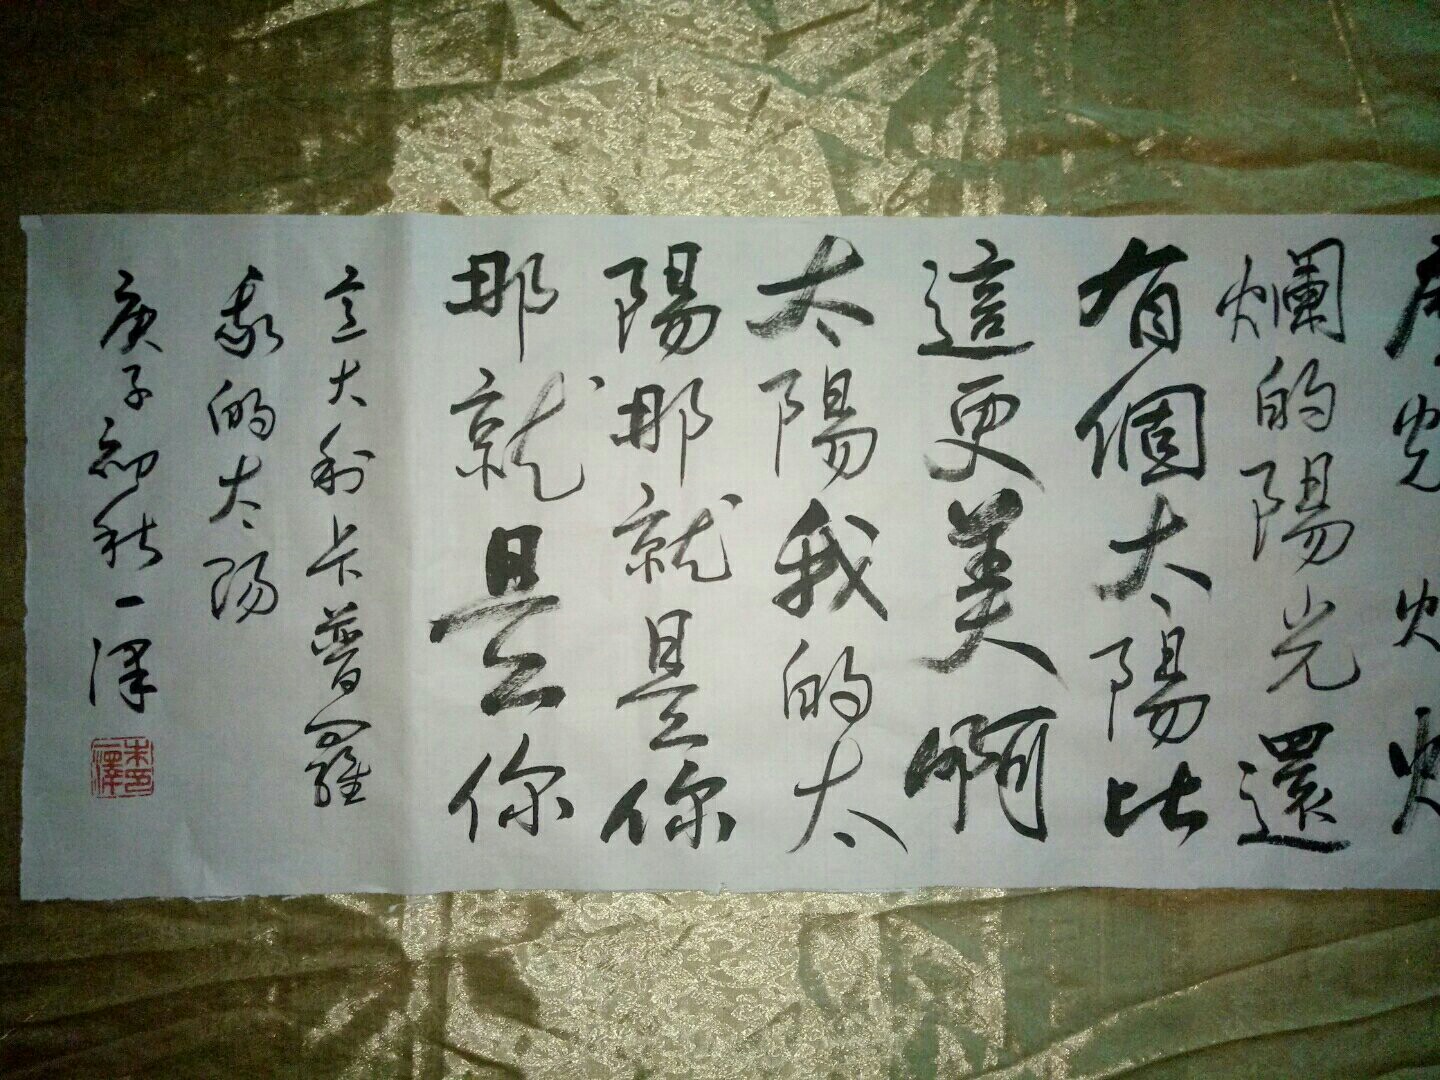 爛的陽光還
有個太陽比
這更美啊
太陽我的太
陽那就是你
那就是你
意大利卡普羅
我的太陽
庚子初秋一澤